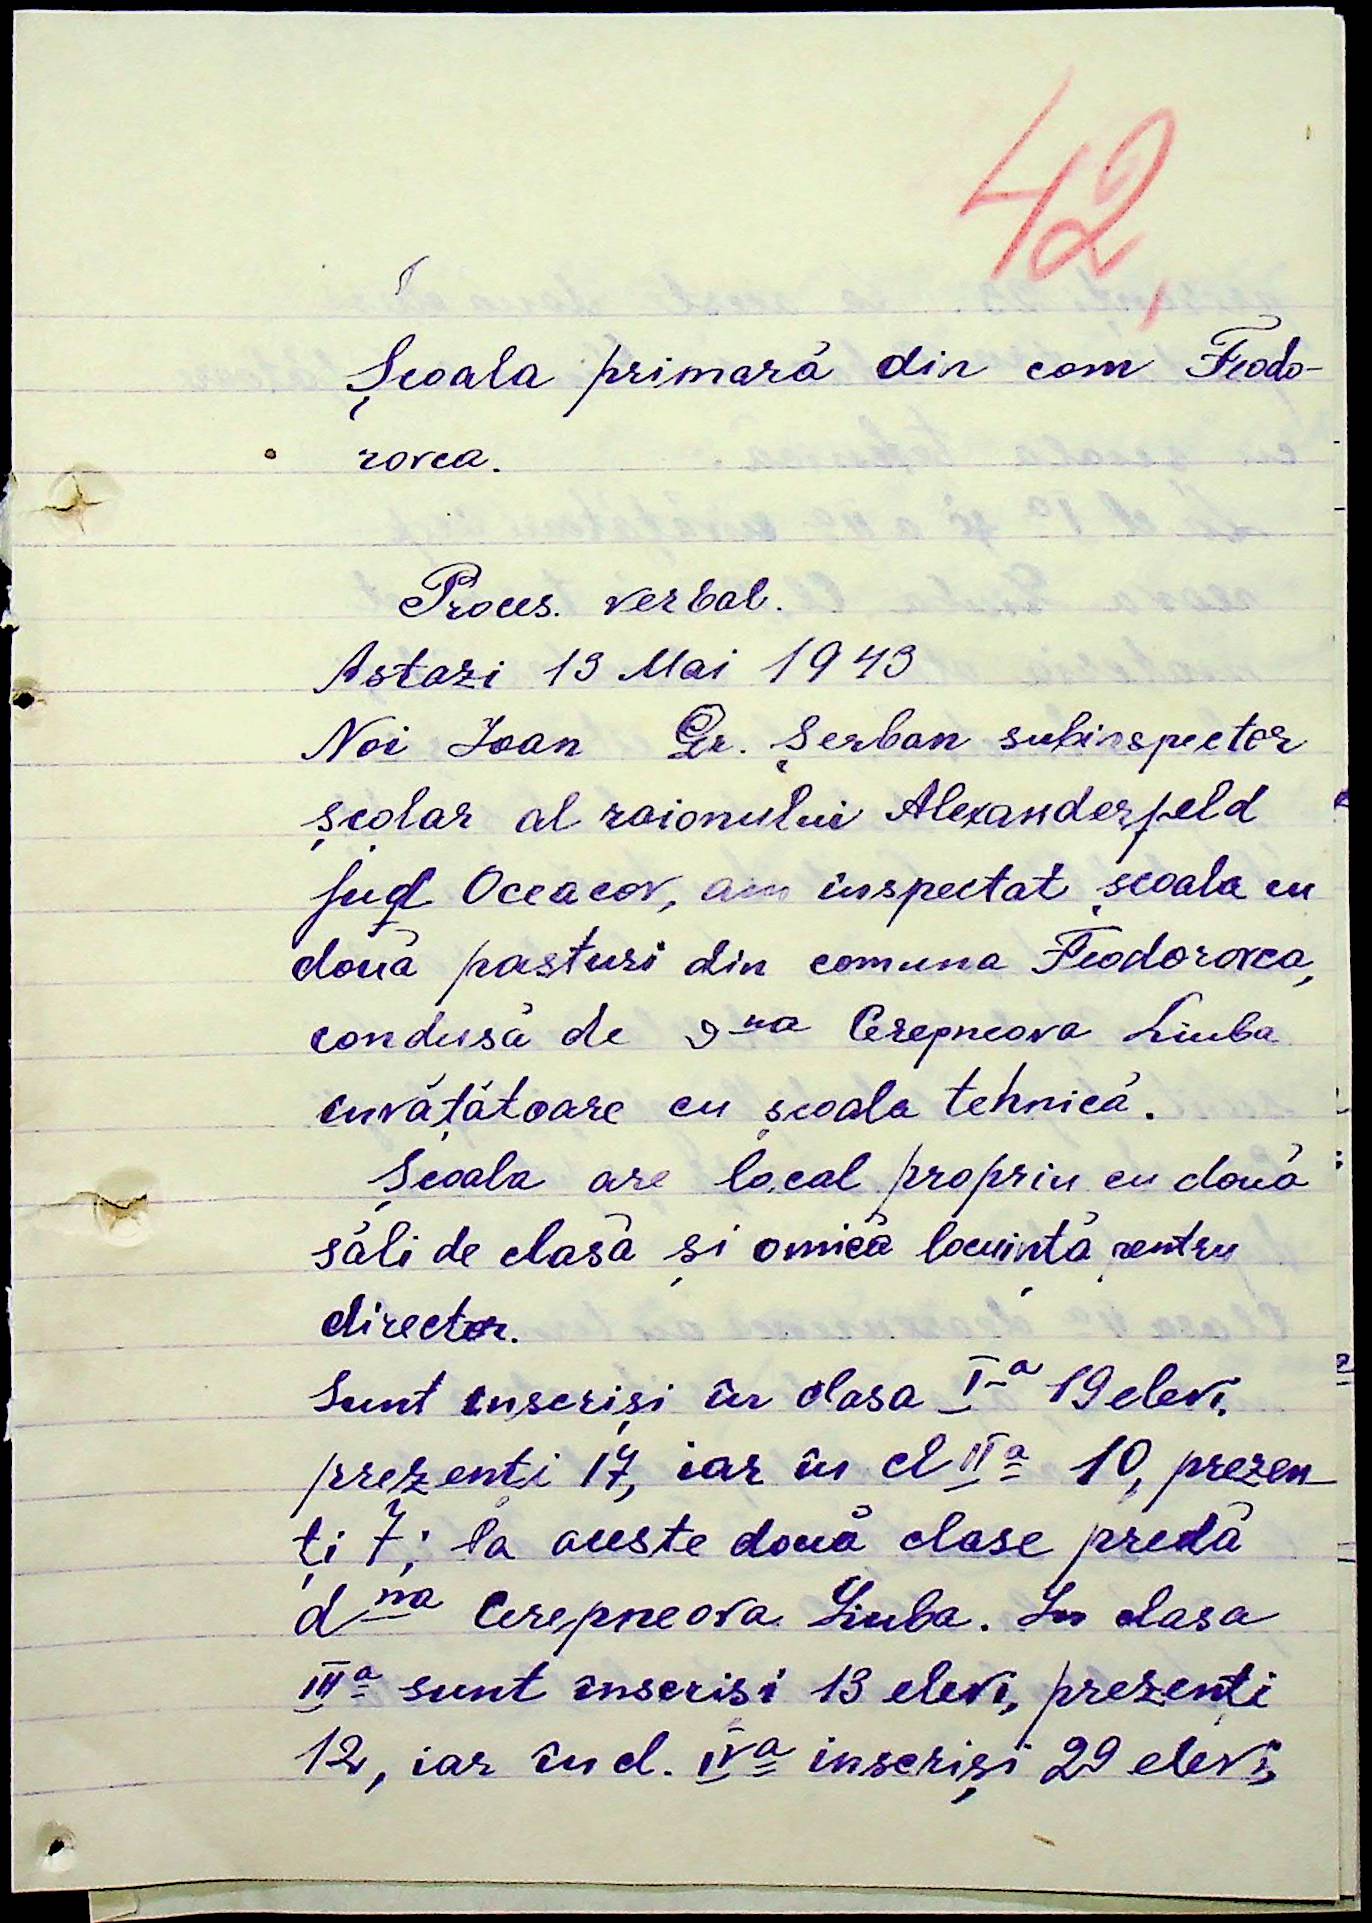 42,
Școala primară din com Feodo-
rovca.
Proces. verbal.
Astazi 13 Mai 1943
Noi Ioan Gr. Șerban subinspector
școlar al raionului Alexanderfeld
jud Oceacov, am inspectat școala cu
două posturi din comuna Feodorovca,
condusă de dna Cerepneova Liuba
învățătoare cu școala tehnică.
Școala are local propriu cu două
săli de clasă și o mică locuință pentru
director.
Sunt înscriși în clasa I-a 19 elevi,
prezenti 17, iar în cl IIa 10, prezen-
ți 7; la aceste două clase predă
dna Cerepneova Liuba. În clasa
IIIa sunt înscrisi 13 elevi, prezenți
12, iar în cl. IVa inscriși 29 elevi,